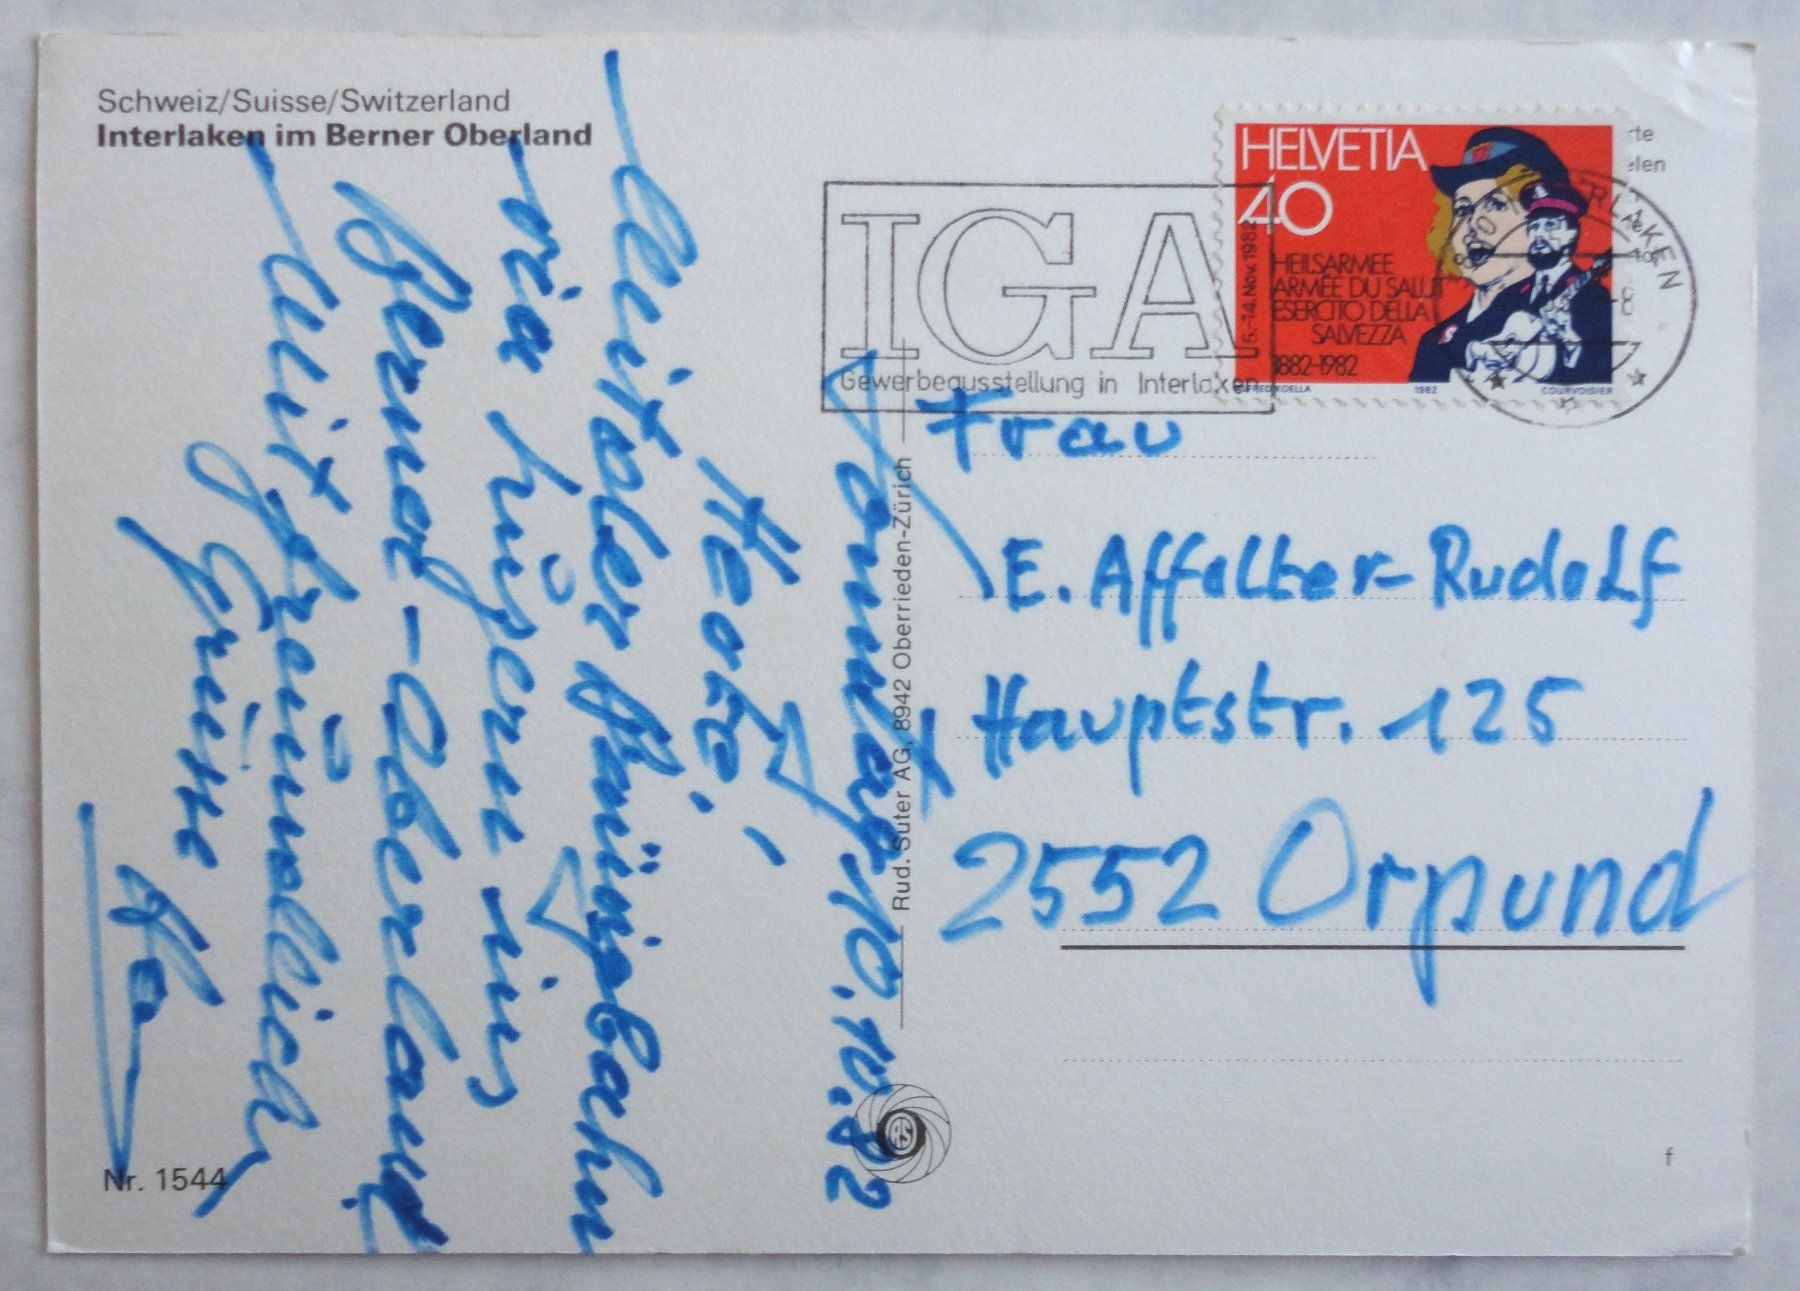 Schweiz/Suisse/Switzerland
Interlaken im Berner Oberland
Sonntag 10.10.82
Mit der Brünigbahn
via Luzern ins
Berner-Oberland.
Mit freundlich
Grüsse
Nr. 1544
Rud. Suter AG, 8942 Oberrieden-Zürich
IGA
5.-14.Nov.1982
Gewerbeausstellung in Interlaken
HELVETIA
40
HEILSARMEE
ARMÉE DU SALUT
ESERCITO DELLA
SALVEZZA
1882-1982
1982
COURVOISIER
INTERLAKEN
Frau
E. Affolter-Rudolf
Hauptstr. 125
2552 Orpund
f